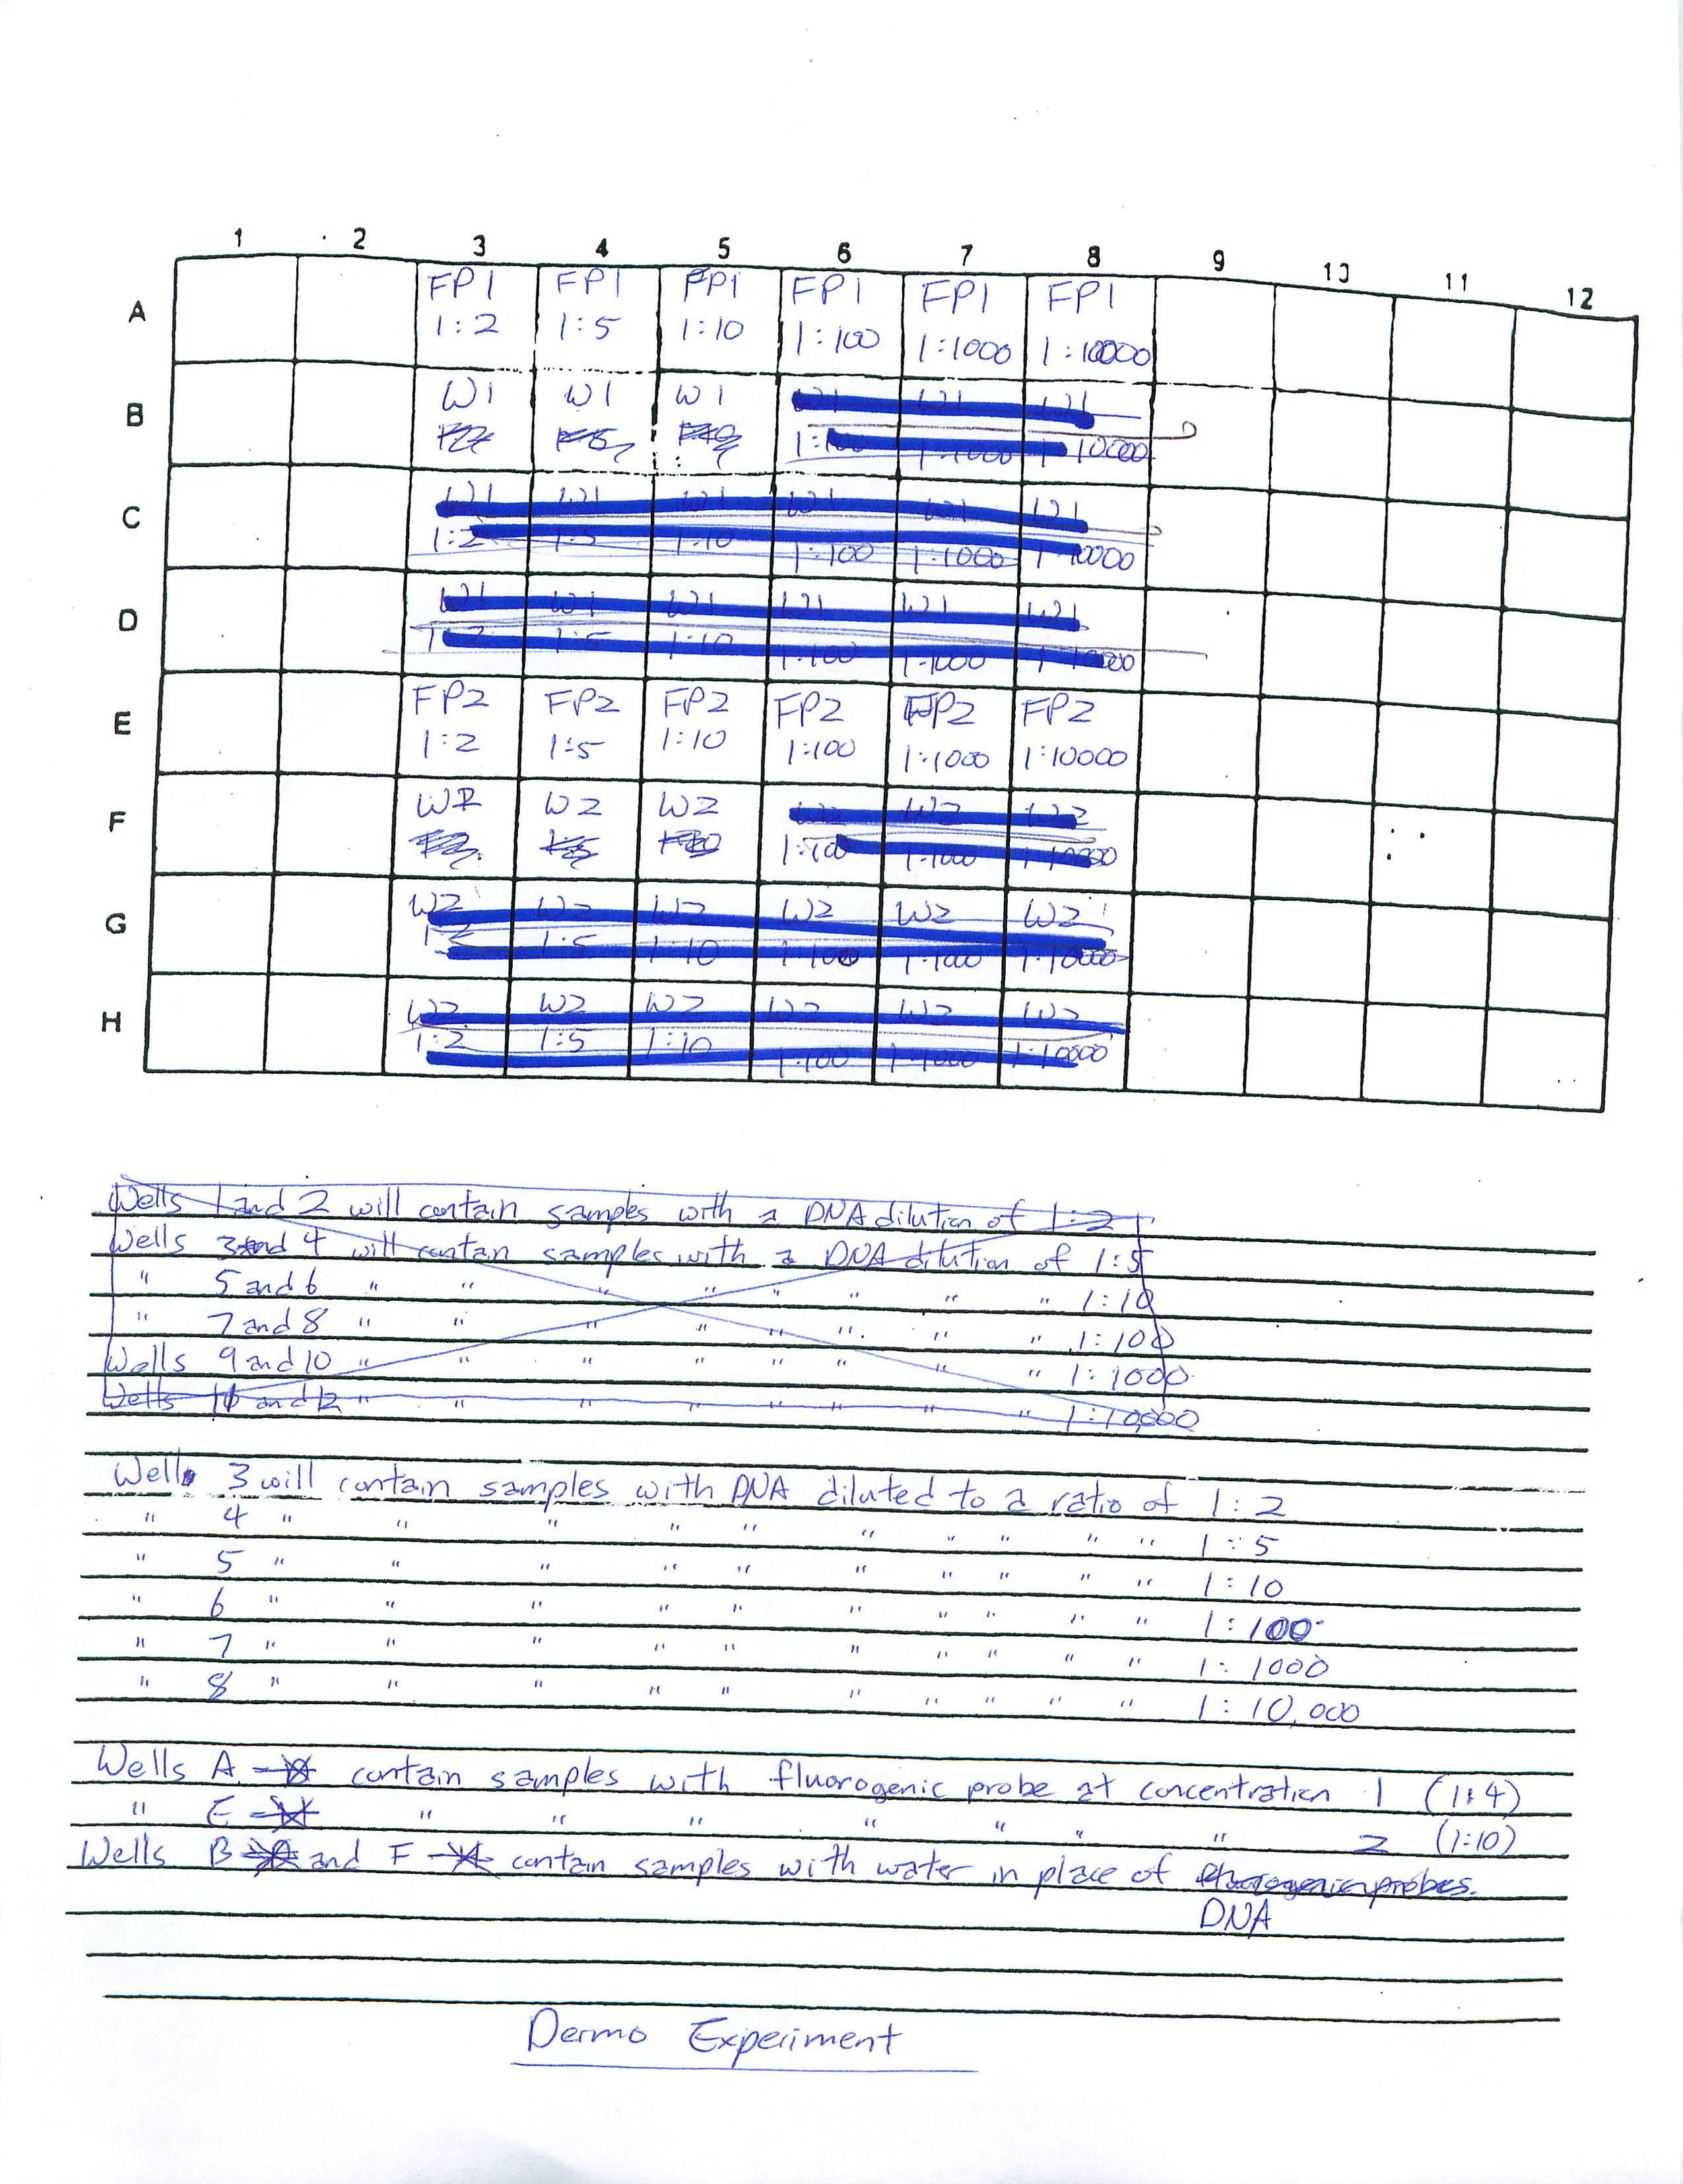 1 2 3 4 5 6 7 8 9 10 11 12
A FP1 FP1 FP1 FP1 FP1 FP1
1:2 1:5 1:10 1:100 1:1000 1:10000
B W1 W1 W1 W1 W1 W1
1:100 1:1000 1:10000
C W1 W1 W1 W1 W1 W1
1:2 1:5 1:10 1:100 1:1000 1:10000
D W1 W1 W1 W1 W1 W1
1:2 1:5 1:10 1:100 1:1000 1:10000
E FP2 FP2 FP2 FP2 FP2 FP2
1:2 1:5 1:10 1:100 1:1000 1:10000
F W2 W2 W2 W2 W2 W2
1:100 1:1000 1:10000
G W2 W2 W2 W2 W2 W2
1:2 1:5 1:10 1:100 1:1000 1:10000
H W2 W2 W2 W2 W2 W2
1:2 1:5 1:10 1:100 1:1000 1:10000
Wells 1 and 2 will contain samples with a DNA dilution of 1:2
Wells 3 and 4 will contain samples with a DNA dilution of 1:5
" 5 and 6 " " " " " " " " 1:10
" 7 and 8 " " " " " " " " 1:100
Wells 9 and 10 " " " " " " " " 1:1000
Wells 11 and 12 " " " " " " " " 1:10,000
Well 3 will contain samples with DNA diluted to a ratio of 1:2
" 4 " " " " " " " " " " 1:5
" 5 " " " " " " " " " " 1:10
" 6 " " " " " " " " " " 1:100
" 7 " " " " " " " " " " 1:1000
" 8 " " " " " " " " " " 1:10,000
Wells A contain samples with fluorogenic probe at concentration 1 (1:4)
" E " " " " " " " 2 (1:10)
Wells B and F contain samples with water in place of fluorogenic probes.
DNA
Dermo Experiment